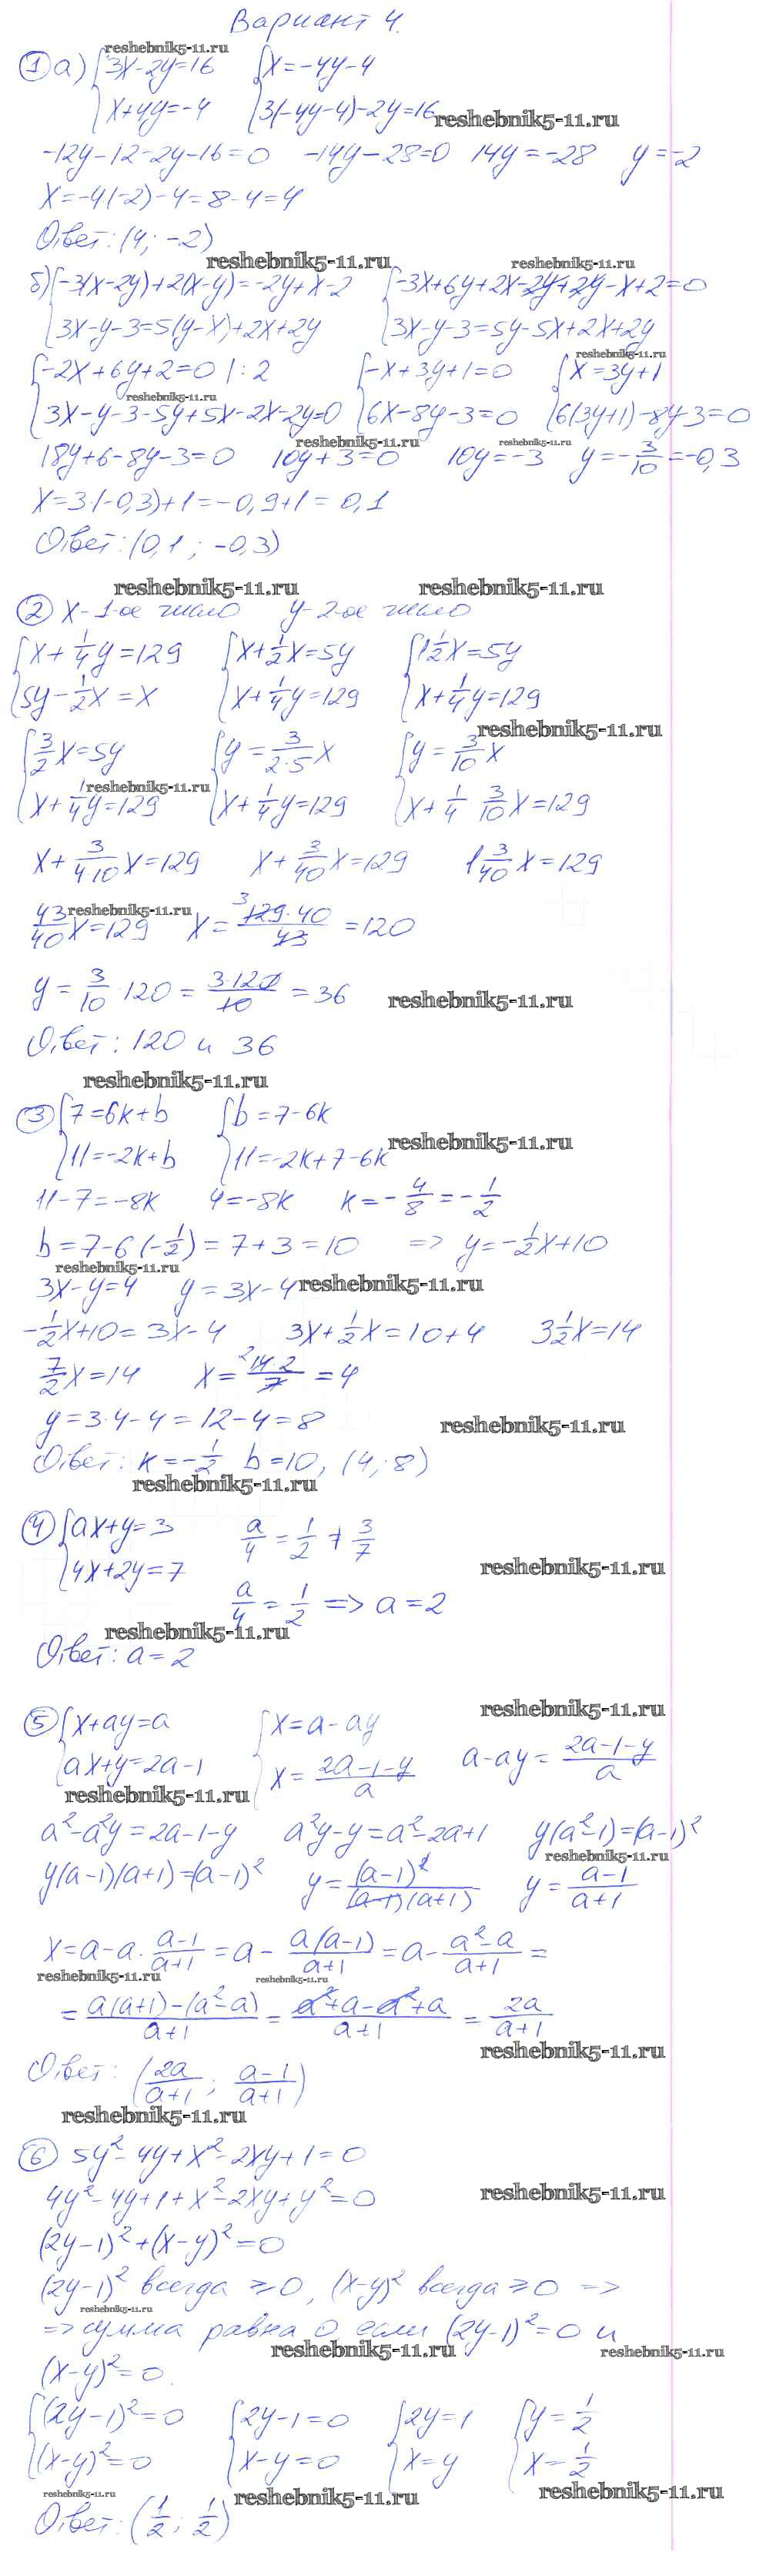 Вариант 4.
reshebnik5-11.ru
① а) {3x-2y=16 {x=-4y-4
{x+4y=-4 {3(-4y-4)-2y=16 reshebnik5-11.ru
-12y-12-2y-16=0 -14y-28=0 14y=-28 y=-2
x=-4(-2)-4=8-4=4
Ответ: (4; -2)
reshebnik5-11.ru reshebnik5-11.ru
б) {-3(x-2y)+2(x-y)=-2y+x-2 {-3x+6y+2x-2y+2y-x+2=0
{3x-y-3=5(y-x)+2x+2y {3x-y-3=5y-5x+2x+2y
reshebnik5-11.ru
{-2x+6y+2=0 |:2 {-x+3y+1=0 {x=3y+1
reshebnik5-11.ru
{3x-y-3-5y+5x-2x-2y=0 {6x-8y-3=0 {6(3y+1)-8y-3=0
reshebnik5-11.ru reshebnik5-11.ru
18y+6-8y-3=0 10y+3=0 10y=-3 y=-3/10=-0,3
x=3·(-0,3)+1=-0,9+1=0,1
Ответ: (0,1; -0,3)
reshebnik5-11.ru reshebnik5-11.ru
② x-1-ое число y-2-ое число
{x+1/4y=129 {x+1/2x=5y {1 1/2x=5y
{5y-1/2x=x {x+1/4y=129 {x+1/4y=129
reshebnik5-11.ru
{3/2x=5y {y=3/2·5x {y=3/10x
reshebnik5-11.ru
{x+1/4y=129 {x+1/4y=129 {x+1/4 3/10x=129
x+3/4·10x=129 x+3/40x=129 1 3/40x=129
reshebnik5-11.ru
43/40x=129 x=3 129·40/43=120
y=3/10·120=3·120/10=36 reshebnik5-11.ru
Ответ: 120 и 36
reshebnik5-11.ru
③ {7=6k+b {b=7-6k
{11=-2k+b {11=-2k+7-6k reshebnik5-11.ru
11-7=-8k 4=-8k k=-4/8=-1/2
b=7-6(-1/2)=7+3=10 => y=-1/2x+10
reshebnik5-11.ru
3x-y=4 y=3x-4 reshebnik5-11.ru
-1/2x+10=3x-4 3x+1/2x=10+4 3 1/2x=14
7/2x=14 x=2 14·2/7=4
y=3·4-4=12-4=8 reshebnik5-11.ru
Ответ: k=-1/2 b=10, (4; 8)
reshebnik5-11.ru
④ {ax+y=3 a/4=1/2≠3/7
{4x+2y=7 reshebnik5-11.ru
a/4=1/2 => a=2
reshebnik5-11.ru
Ответ: a=2
reshebnik5-11.ru
⑤ {x+ay=a {x=a-ay
{ax+y=2a-1 {x=2a-1-y/a a-ay=2a-1-y/a
reshebnik5-11.ru
a²-a²y=2a-1-y a²y-y=a²-2a+1 y(a²-1)=(a-1)²
reshebnik5-11.ru
y(a-1)(a+1)=(a-1)² y=(a-1)²/(a-1)(a+1) y=a-1/a+1
x=a-a·a-1/a+1=a-a(a-1)/a+1=a-a²-a/a+1=
reshebnik5-11.ru reshebnik5-11.ru
=a(a+1)-(a²-a)/a+1=a²+a-a²+a/a+1=2a/a+1
reshebnik5-11.ru
Ответ: (2a/a+1; a-1/a+1)
reshebnik5-11.ru
⑥ 5y²-4y+x²-2xy+1=0
4y²-4y+1+x²-2xy+y²=0 reshebnik5-11.ru
(2y-1)²+(x-y)²=0
(2y-1)² всегда ≥0, (x-y)² всегда ≥0 =>
reshebnik5-11.ru
=> сумма равна 0 если (2y-1)²=0 и
reshebnik5-11.ru reshebnik5-11.ru
(x-y)²=0.
{(2y-1)²=0 {2y-1=0 {2y=1 {y=1/2
{(x-y)²=0 {x-y=0 {x=y {x=1/2
reshebnik5-11.ru reshebnik5-11.ru reshebnik5-11.ru
Ответ: (1/2; 1/2)